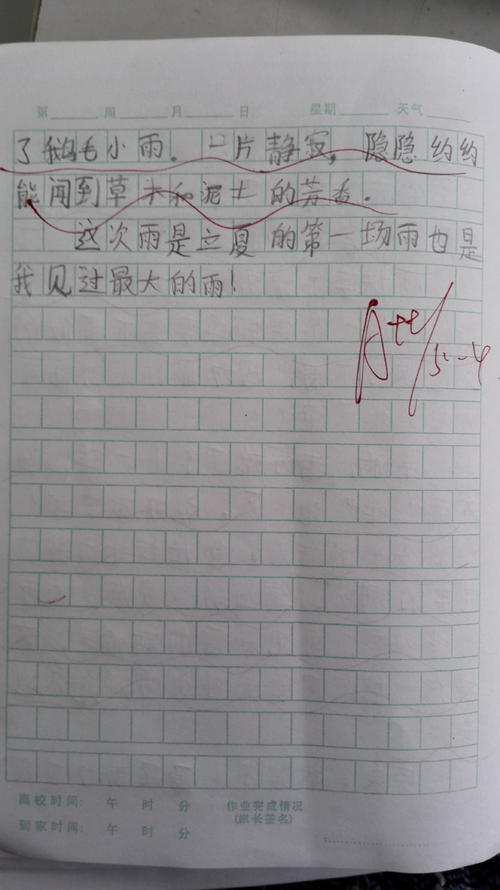 第 周 月 日 星期 天气
了鹅毛小雨。一片静寂，隐隐约约
能闻到草木和泥土的芳香。
这次雨是立夏的第一场雨也是
我见过最大的雨！
A++/5-4
离校时间： 午 时 分 作业完成情况
(家长签名)
到家时间： 午 时 分